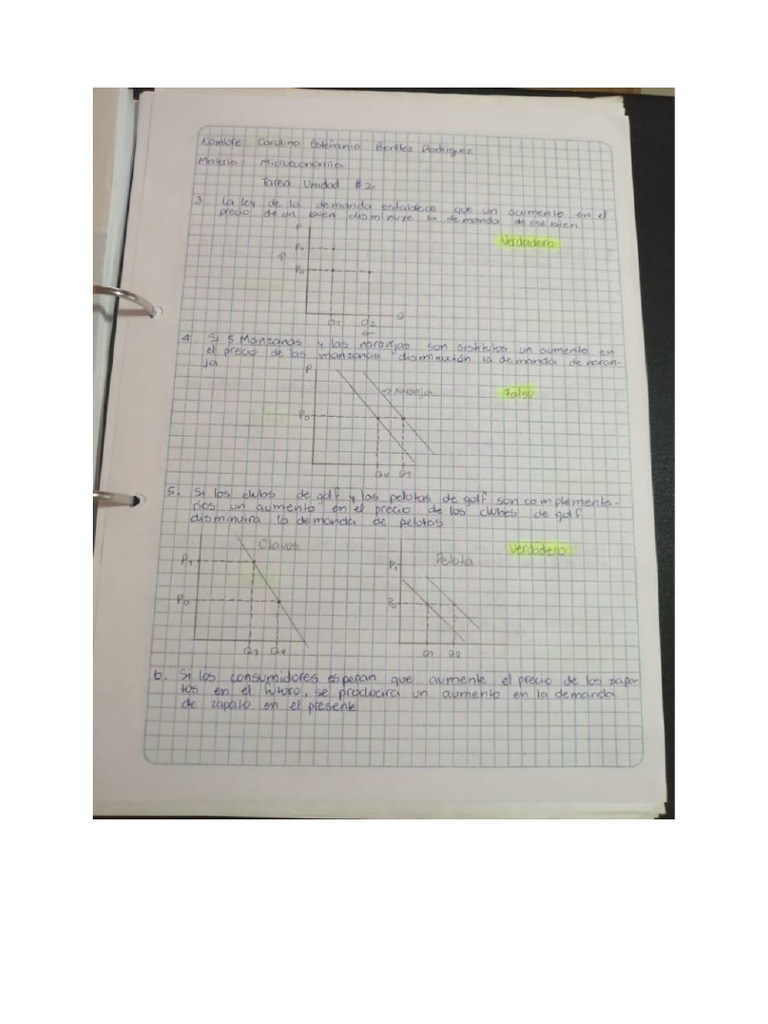 Nombre Carolina Estefania Benitez Rodriguez
Materia Microeconomia
Tarea Unidad #2.
3. La ley de la demanda establece que un aumento en el
precio de un buen disminuye la demanda de ese bien
Verdadero
P
P1
P0
Q1 Q2 Q
4. Si 5 Manzanas y las naranjas son sustitutos un aumento en
el precio de las manzanas disminución la demanda de naran-
ja
P
Naranja
Falso
P0
Q0 Q1
5. Si los clubs de golf y las pelotas de golf son complementa-
rios un aumento en el precio de los clubes de golf
disminuira la demanda de pelotas
Clavos
Pelota
Verdadero
P1
P0
Q1 Q0
P1
P0
Q1 Q0
6. Si los consumidores esperan que aumente el precio de los zapa-
tos en el futuro, se producira un aumento en la demanda
de zapato en el presente